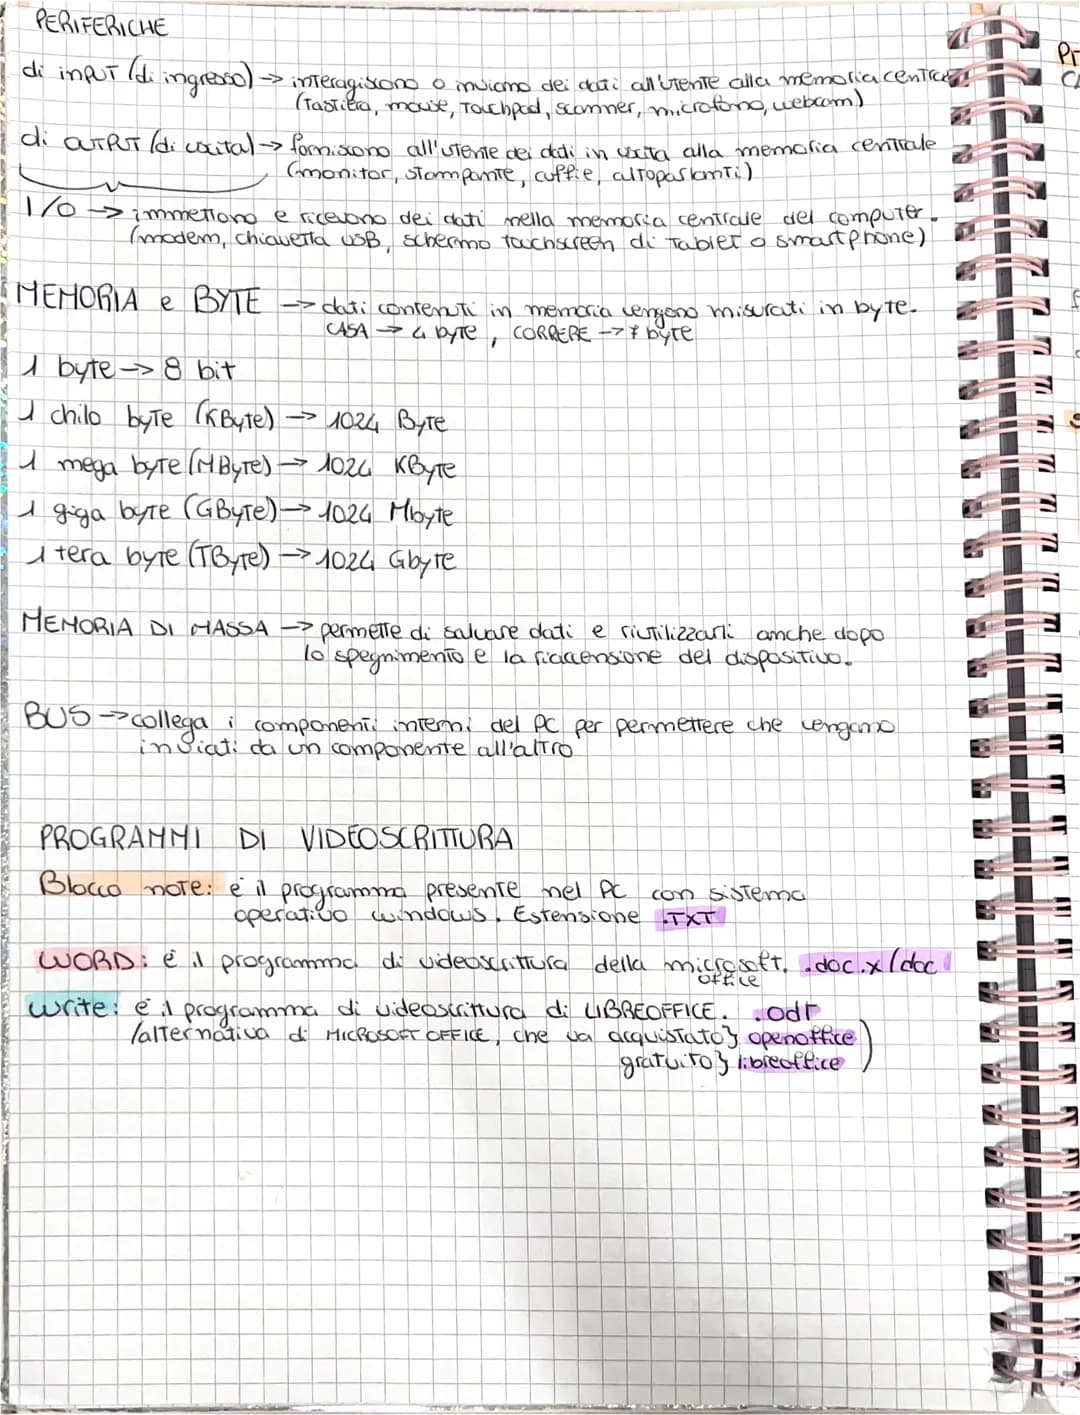 PERIFERICHE
di inpuT (di ingresso) → interagiscono o inviano dei dati all'utente alla memoria centrale
(Tastiera, mouse, Touchpad, scanner, microfono, webcam)
di OUTPUT (di uscita) → forniscono all'utente dei dati in uscita alla memoria centrale
(monitor, stampante, cuffie, altoparlanti)
I/O → immettono e ricevono dei dati nella memoria centrale del computer.
(modem, chiavetta USB, schermo touchscreen di Tablet o smartphone)
MEMORIA e BYTE → dati contenuti in memoria vengono misurati in byte.
CASA → 4 byte, CORRERE → 7 byte
1 byte → 8 bit
1 chilo byte (KByte) → 1024 Byte
1 mega byte (MByte) → 1024 KByte
1 giga byte (GByte) → 1024 Mbyte
1 tera byte (TByte) → 1024 Gbyte
MEMORIA DI MASSA → permette di salvare dati e riutilizzarli anche dopo
lo spegnimento e la riaccensione del dispositivo.
BUS → collega i componenti interni del PC per permettere che vengano
inviati da un componente all'altro
PROGRAMMI DI VIDEOSCRITTURA
Blocco note: è il programma presente nel PC con sistema
operativo windows. Estensione .TXT
WORD: è il programma di videoscrittura della microsoft. .doc.x/doc
office
Write: è il programma di videoscrittura di LIBREOFFICE. .odt
(alternativa di MICROSOFT OFFICE, che va acquistato} openoffice
gratuito} libreoffice)